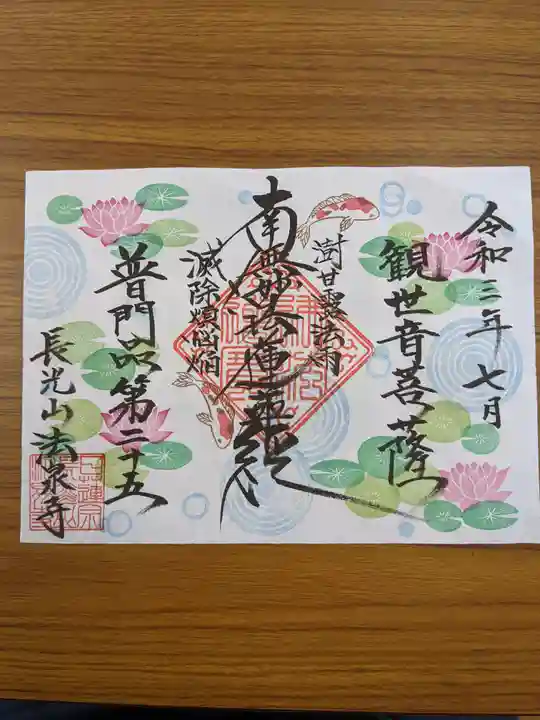 令和三年七月
観世音菩薩
澍甘露法雨
南無妙法蓮華経
滅除煩悩焔
普門品第二十五
長光山 法泉寺